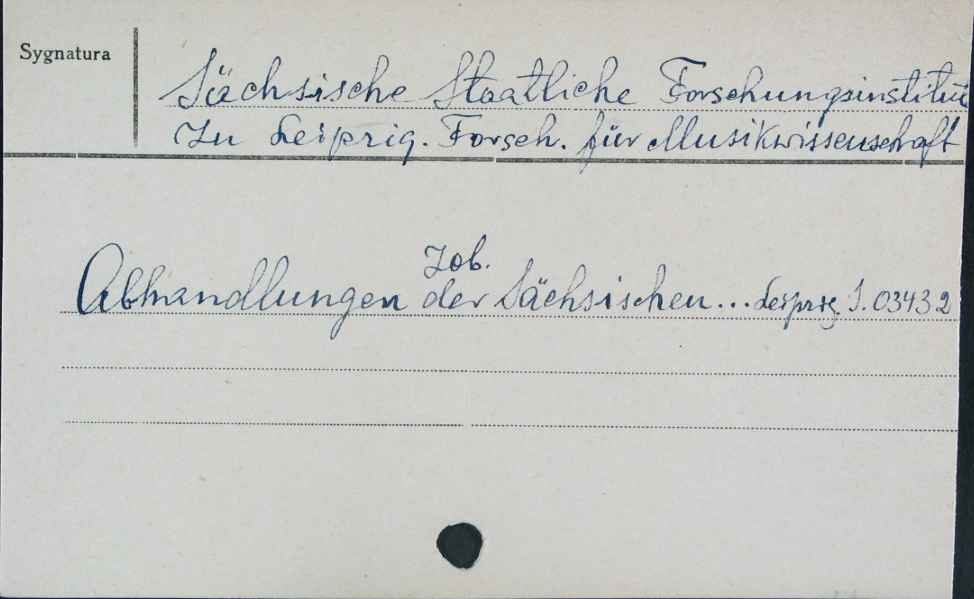 Sygnatura
Sächsische Staatliche Forschungsinstitut
zu Leipzig. Forsch. für Musikwissenschaft
Zob.
Abhandlungen der Sächsischen... Leipzig J. 03432